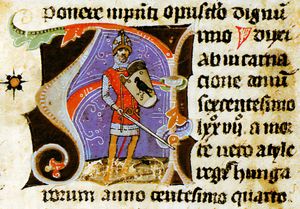 ponere in pñti opusclo dignū
imo
ab incarna
cione anni
sexcentesimo
lxx vij. a mor
te vero atyle
regis hunga
rorum anno centesimo quarto